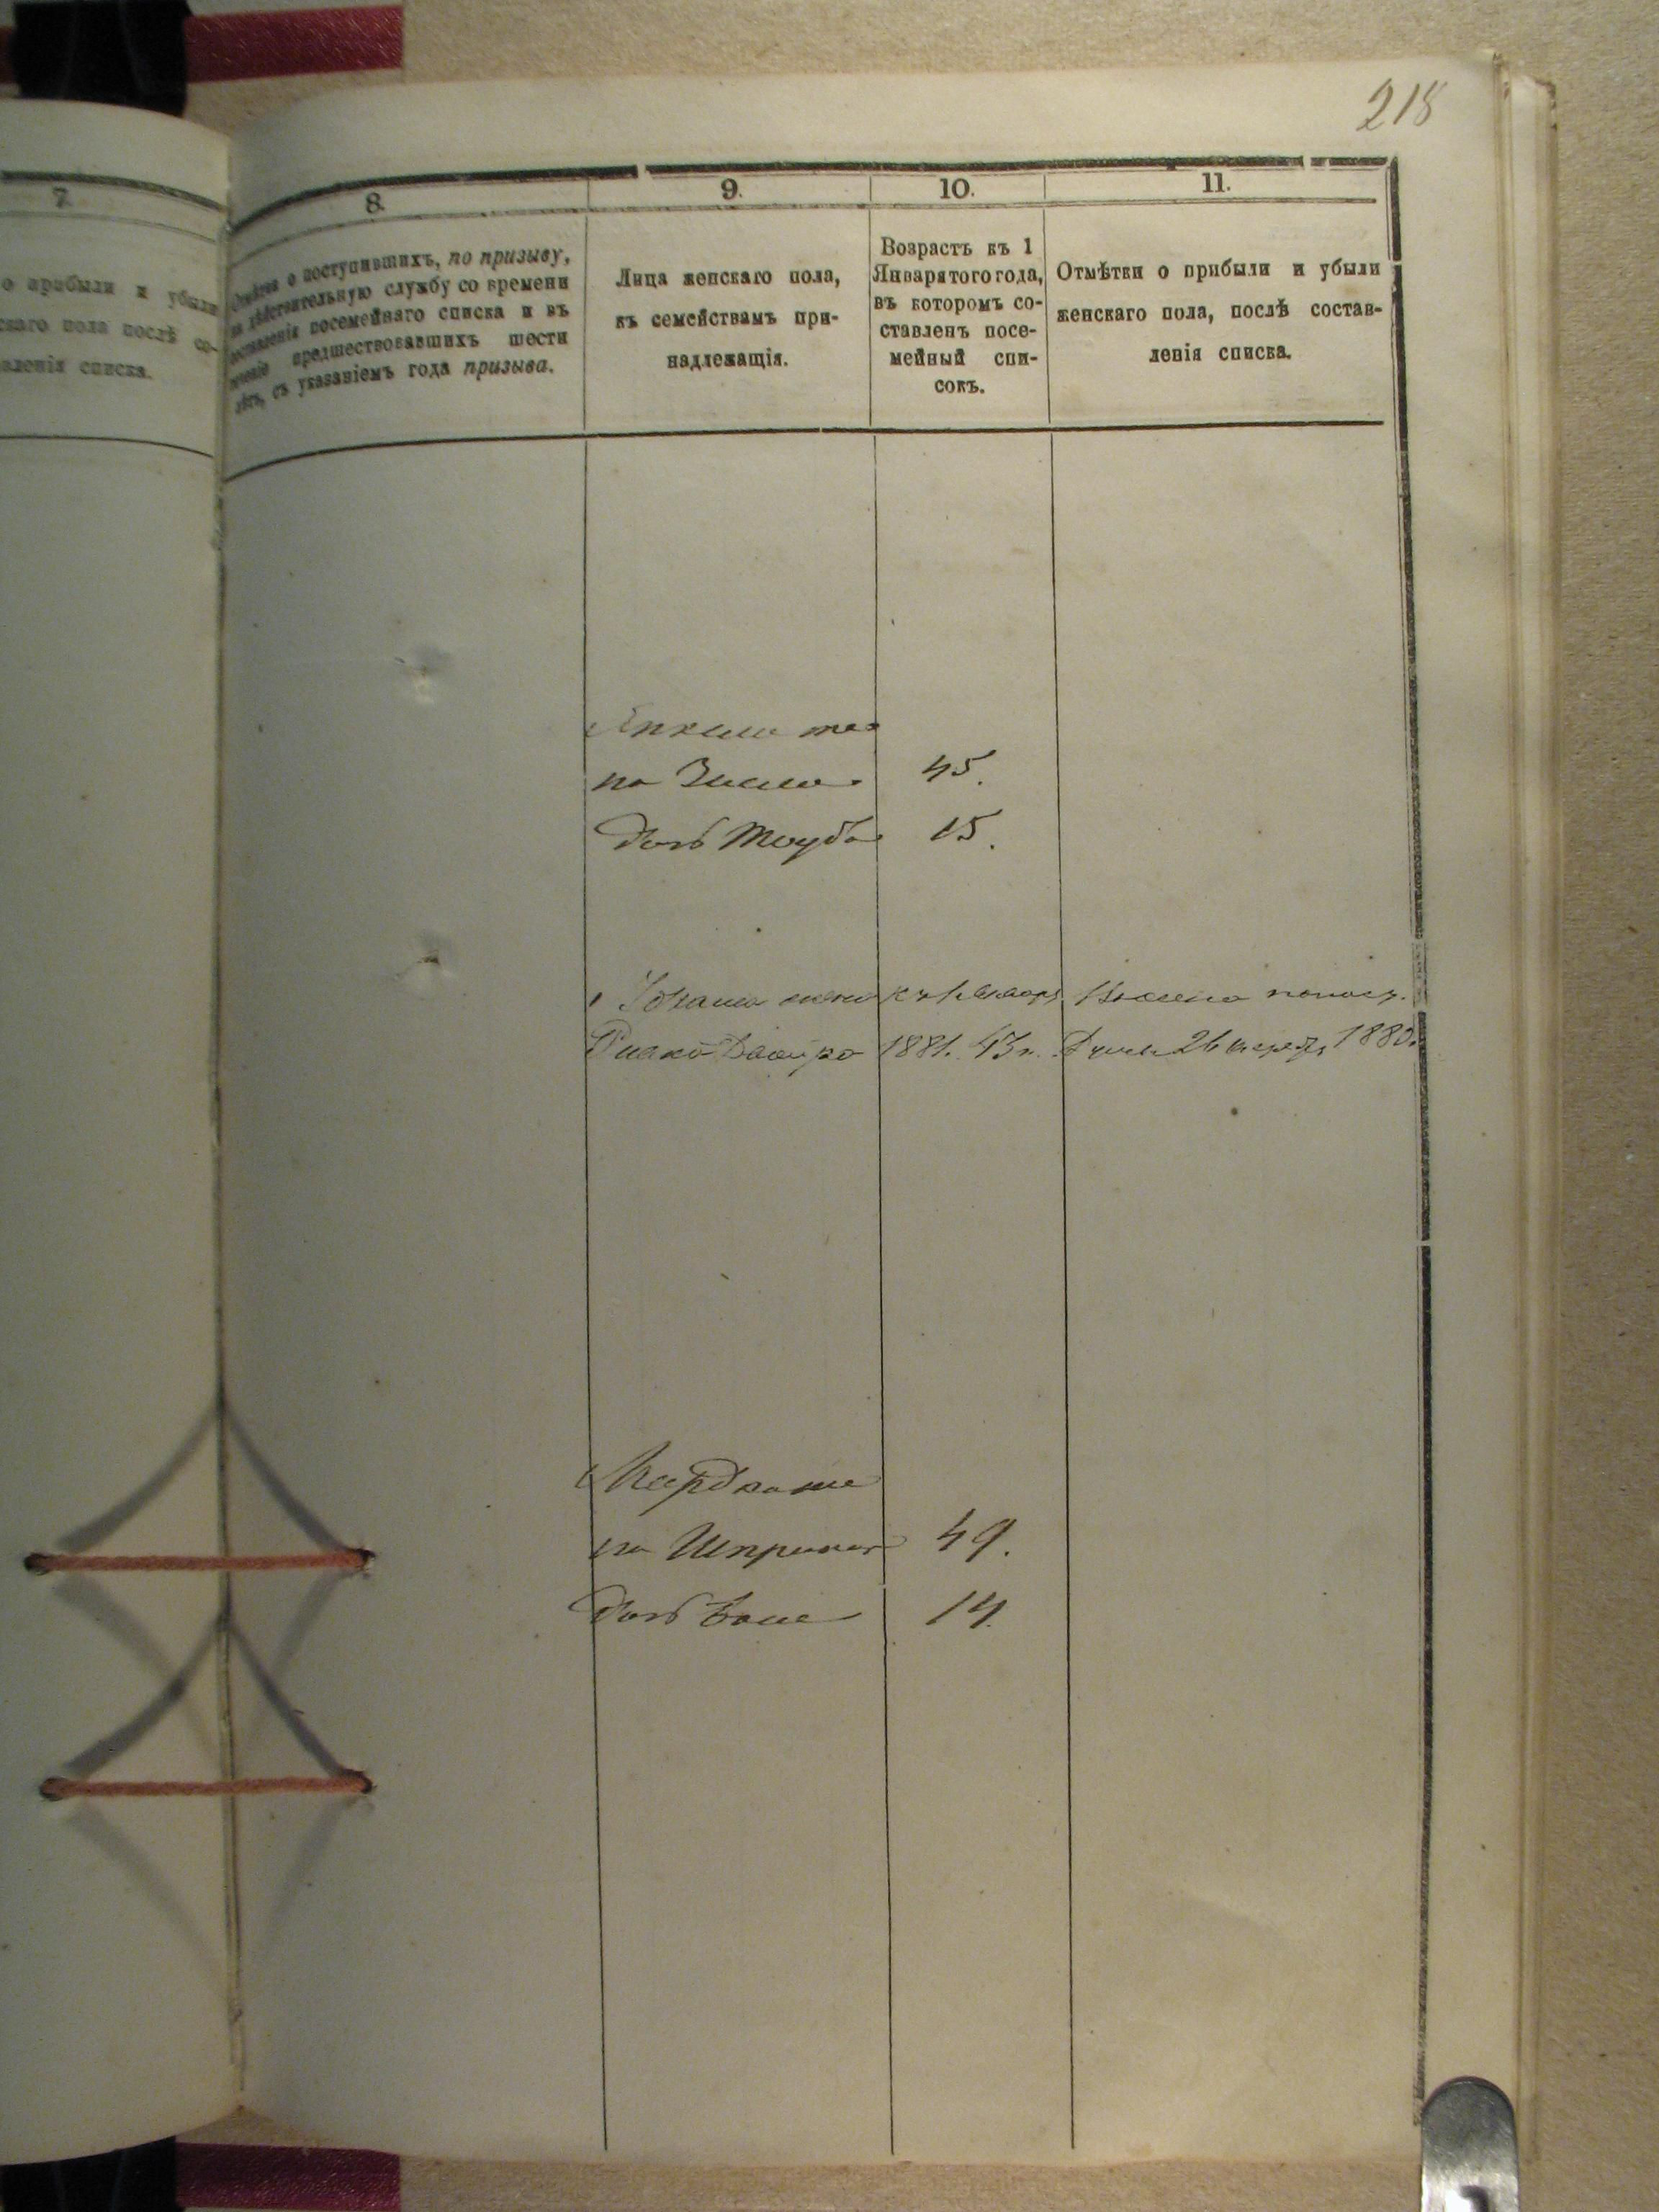 218
7.
8.
9.
10.
11.
о прибыли и убыли
скаго пола послѣ со-
вленія списка.
Отмѣтка о поступившихъ, по призыву,
на дѣйствительную службу со времени
составленія посемейнаго списка и въ
теченіе предшествовавшихъ шести
лѣтъ, съ указаніемъ года призыва.
Лица женскаго пола,
къ семействамъ при-
надлежащія.
Возрастъ къ 1
Января того года,
въ которомъ со-
ставленъ посе-
мейный спи-
сокъ.
Отмѣтки о прибыли и убыли
женскаго пола, послѣ состав-
ленія списка.
на 45.
дочь Тауба 15.
1881. 43 л. Думы 26 1880.
Мордхаи же
на Шпринца 49.
дочь Хана 14.